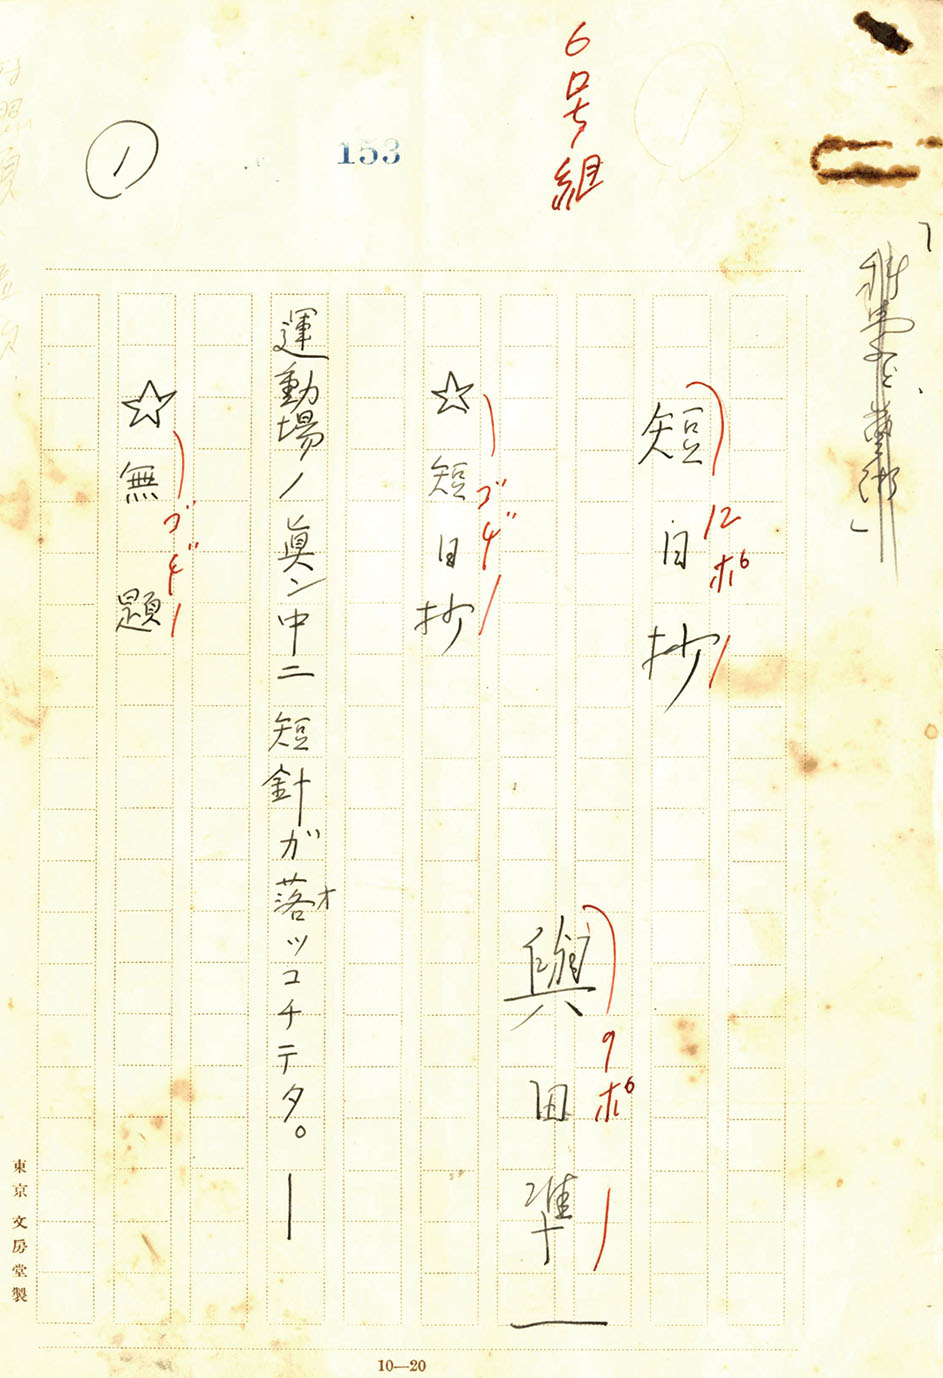 6号組
153
1
「科学と芸術」
短日抄
12ポ
與田準一
9ポ
☆短日抄
ゴチ
運動場ノ眞ン中ニ短針ガ落ッコチテタ。―
オ
☆無題
ゴチ
東京 文房堂製
10—20